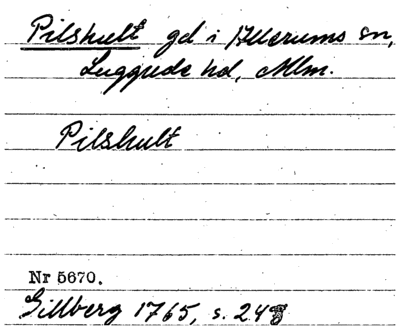 Pilshult gd i Allerums sn,
Luggude hd, Mlm.
Pilshult
Nr 5670.
Gillberg 1765, s. 248